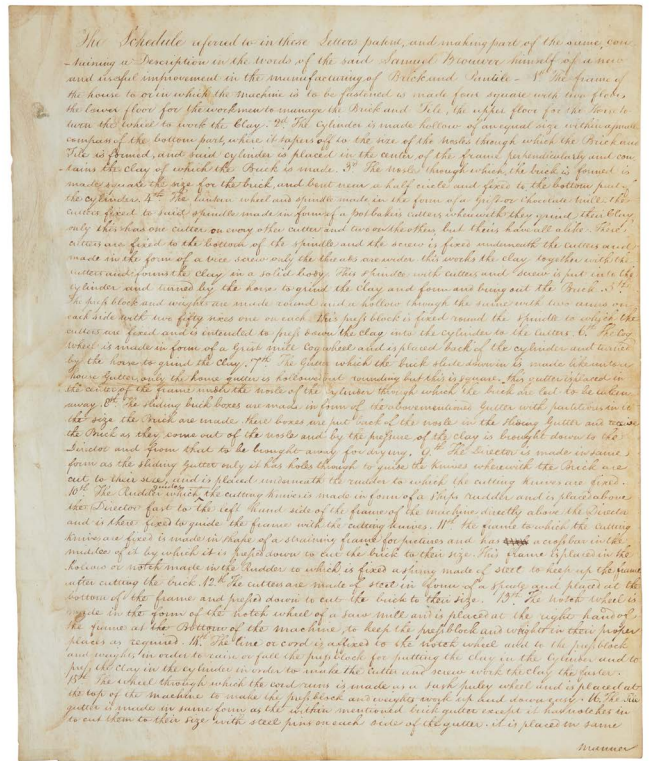 The Schedule referred to in these Letters patent, and making part of the same, con
-taining a Description in the words of the said Samuel Brouwer himself of a new
and useful improvement in the manufacturing of Brick and Pantile – 1st The frame of
the house to or in which the machine is to be fastened is made four square with two floors
the lower floor for the workmen to manage the Brick and Tile, the upper floor for the Horse to
turn the wheel to work the Clay. 2d The Cylinder is made hollow of an equal size within a small
compass of the bottom part, where it tapers off to the size of the nosles through which the Brick and
Tile is formed, and said cylinder is placed in the center of the frame perpendicularly and con
tains the clay of which the Brick is made. 3d The nosles through which the brick is formed is
made square the size for the brick, and bent near a half circle and fixed to the bottom part of
the cylinder. 4th The lantern wheel and spindle made in the form of a Grist or Chocolate mill the
cutters fixed to said spindle made in form of a potbakers cutters wherewith they grind their Clay,
only this has one cutter on every other cutter and two on the other, but theirs have all alike. These
cutters are fixed to the bottom of the spindle and the screw is fixed underneath the cutters and
made in the form of a vice screw only the threads are wider this works the clay together with the
cutters and forms the clay in a solid body. This spindle with cutters and screw is put into the
cylinder and turned by the horse to grind the clay and form and bring out the Brick. 5th
The press block and weight are made round and a hollow through the same with two arms on
each side with two fifty noes one on each This press block is fixed round the spindle to which the
cutters are fixed and is intended to press down the clay into the cylinder to the cutters. 6th The Cog
wheel is made in form of a Grist mill Cogwheel and is placed back of the cylinder and turned
by the horse to grind the clay. 7th The Gutter which the brick slide down in is made like unto a
house Gutter, only the house gutter is hollowed out rounding but this is square. This gutter is placed in
the center of the frame under the nosle of the cylinder through which the brick are led to be taken
away. 8th The sliding brick boxes are made in form of the abovementioned Gutter with partitions in it
the size the Brick are made these boxes are put back of the nosle in the sliding Gutter and receive
the Brick as they come out of the nosle and by the pressure of the clay is brought down to the
Director and from that to be brought away for drying. 9th The Director is made in same
form as the sliding Gutter only it has holes through to guide the knives wherewith the Brick are
cut to their size, and is placed underneath the rudder to which the cutting knives are fixed.
10th The Rudder which guides the cutting knives is made in form of a Ships rudder and is placed above
the Director fast to the left hand side of the frame of the machine directly above the Director
and is there fixed to guide the frame with the cutting knives. 11th the frame to which the cutting
knives are fixed is made in shape of a straining frame for pictures and has a cross bar in the
middle of it by which it is pressed down to cut the brick to their size. This frame is placed in the
hollow or notch made in the Rudder to which is fixed a spring made of steel to keep up the frame
after cutting the brick. 12th The cutters are made of steel in form of a and placed at the
bottom of the frame and pressed down to cut the brick to their size. 13th The notch wheel is
made in the form of the notch wheel of a saw mill and is placed at the right hand of
the frame at the Bottom of the machine, to keep the press block and weight in their proper
places as required. 14th The line or cord is affixed to the notch wheel and to the press block
and weight, in order to raise or fall the press block for putting the clay in the cylinder and to
press the clay in the cylinder in order to make the cutter and screw work the clay the faster.
15th The wheel through which the cord runs is made as a sash pulley wheel and is placed at
the top of the machine to make the press block and weights work up and down easy. 16. The Tile
gutter is made in same form as the within mentioned brick gutter except it has notches in
to cut them to their size with steel pins on each side of the gutter. it is placed in same
manner